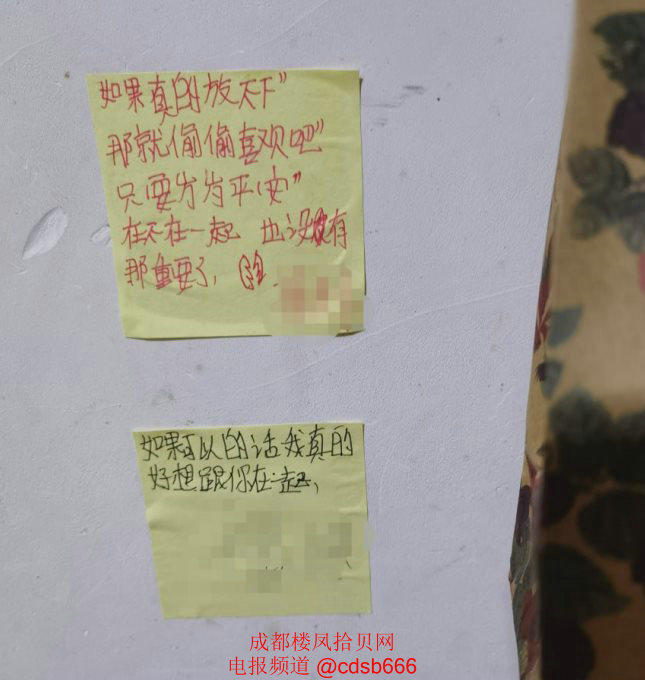 如果真的放不下"
那就偷偷喜欢吧"
只要岁岁平安"
在不在一起 也没有
那重要了,
如果可以的话我真的
好想跟你在一起、
成都楼凤拾贝网
电报频道 @cdsb666